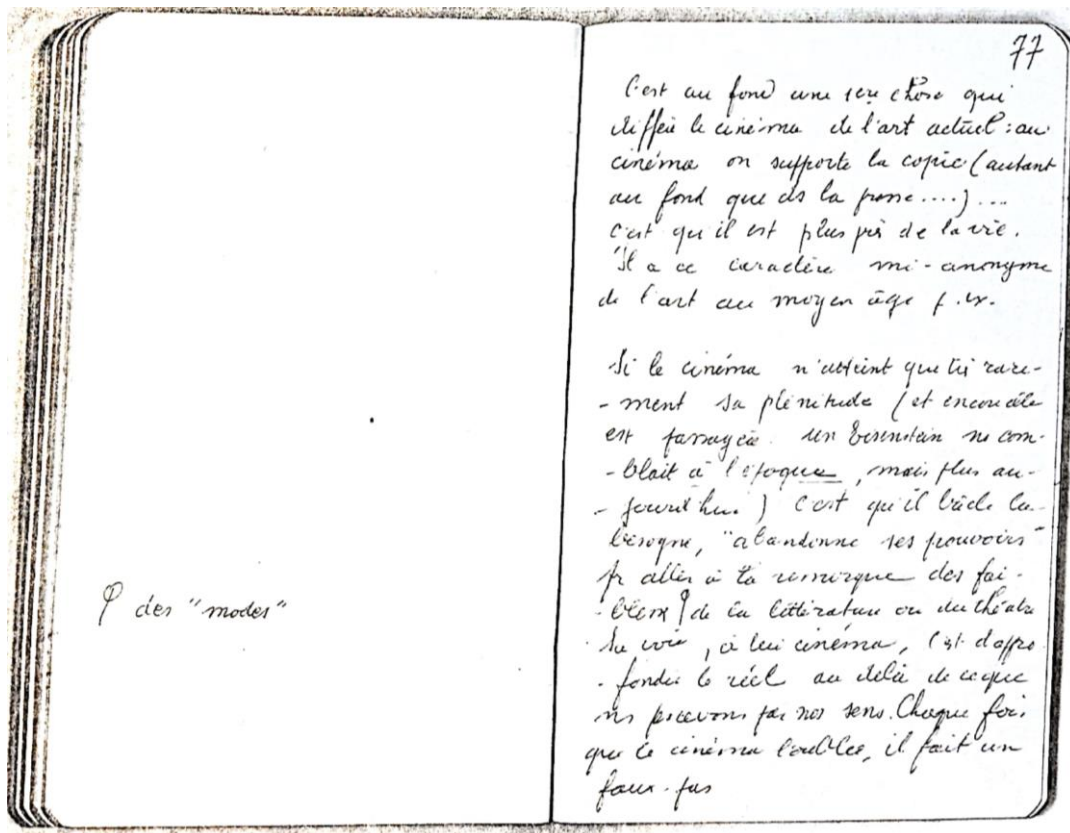 des "modes"
77
C'est au fond une seule chose qui
diffère le cinéma de l'art actuel : au
cinéma on supporte la copie (autant
au fond que ds la presse....)...
c'est qu'il est plus près de la vie.
Il a ce caractère mi-anonyme
de l'art au moyen âge
Si le cinéma n'atteint que très rare-
-ment sa plénitude (et encore elle
est passagère. un Eisenstein ns com-
-blait à l'époque, mais plus au-
-jourd'hui) c'est qu'il bâcle la
besogne, "abandonne ses pouvoirs"
pr aller à la remorque des fai-
-blesses de la littérature ou du théâtre
Sa voie, à lui cinéma, c'est d'appro
-fondir le réel au delà de ce que
ns percevons par nos sens. Chaque fois
que le cinéma l'oublie, il fait un
faux-pas